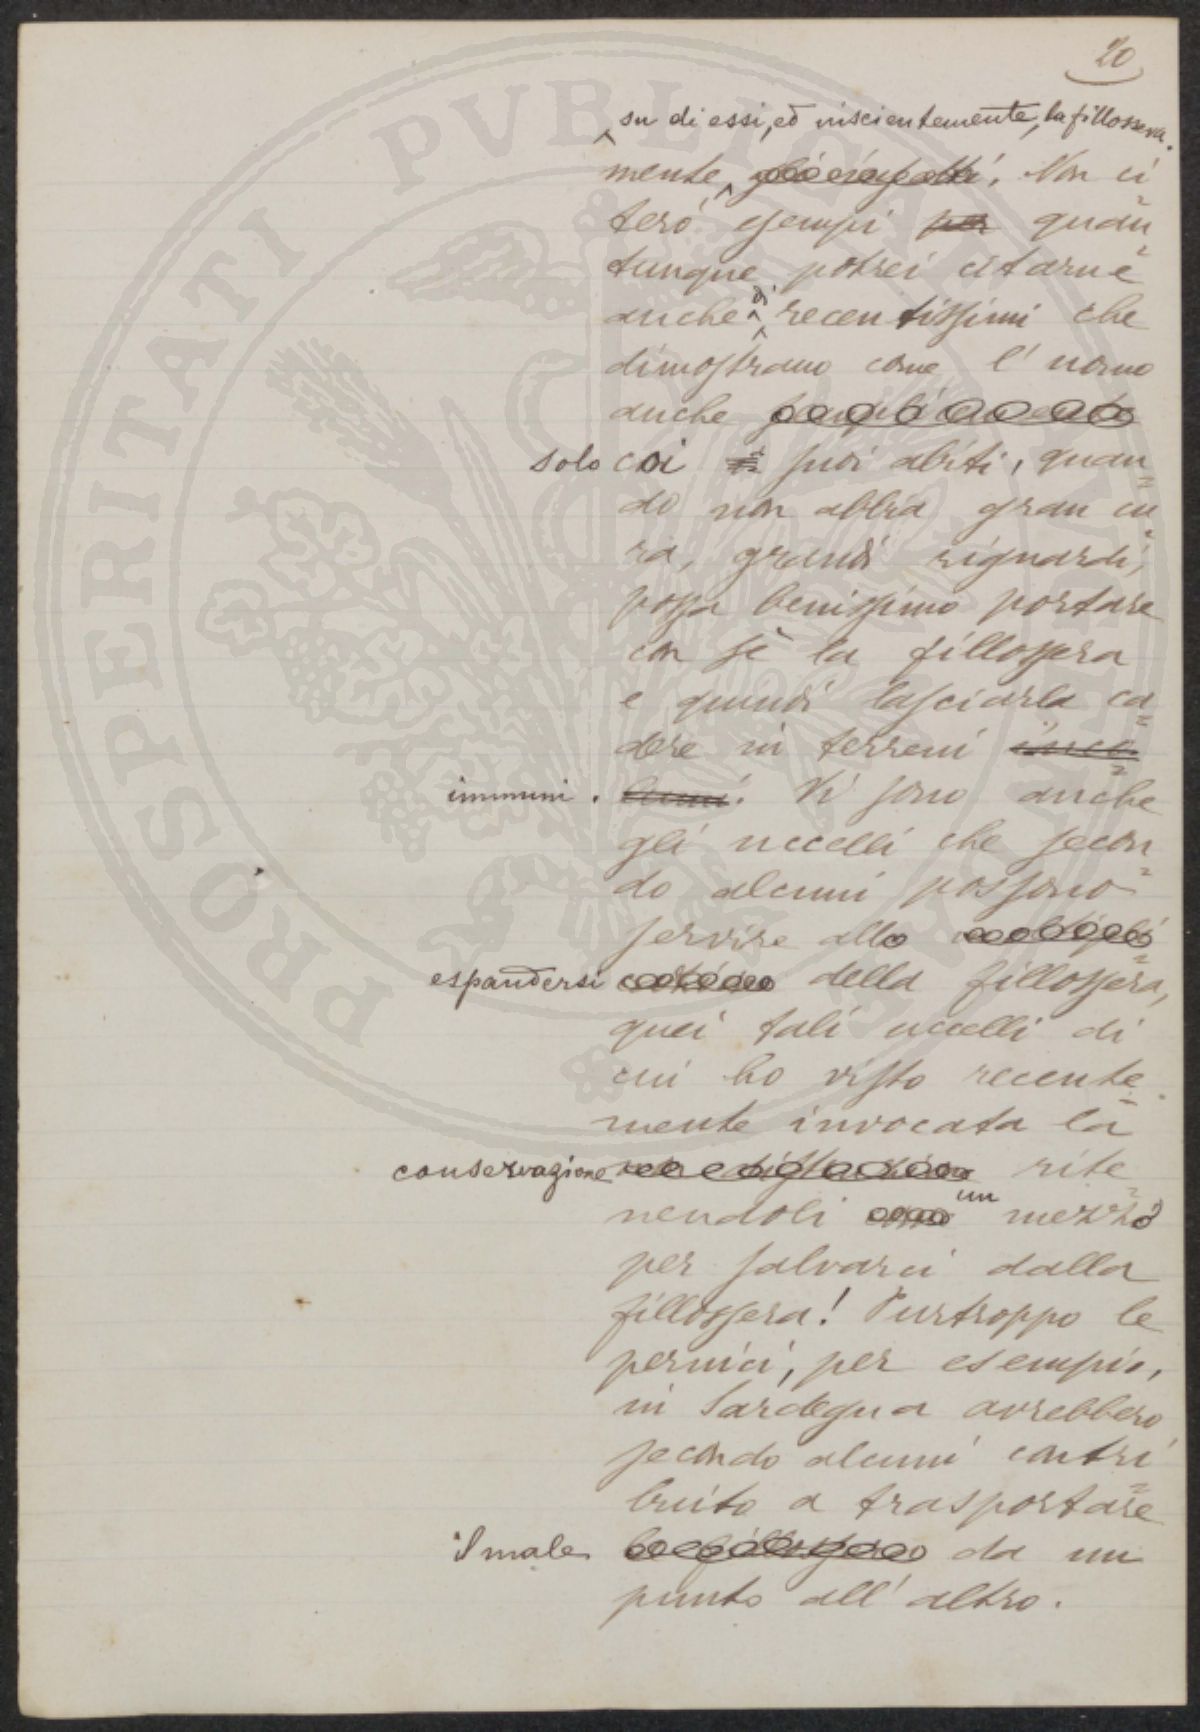 20
su di essi, ed inscientemente, la fillossera.
mente, Non ci
terò esempi per quan=
tunque potrei citarne
anche di recentissimi che
dimostrano come l'uomo
anche semplicemente
solo coi suoi abiti, quan=
do non abbia gran cu=
ra, grandi riguardi,
possa benissimo portare
con sè la fillossera
e quindi lasciarla ca=
dere in terreni
immuni. Vi sono anche
gli uccelli che secon=
do alcuni possono
servire allo
espandersi della fillossera,
quei tali uccelli di
cui ho visto recente=
mente invocata la
conservazione rite=
nendoli un mezzo
per salvarci dalla
fillossera! Purtroppo le
pernici, per esempio,
in Sardegna avrebbero
secondo alcuni contri=
buito a trasportare
il male la fillossera da un
punto all'altro.
PROSPERITATI PVBLICAE